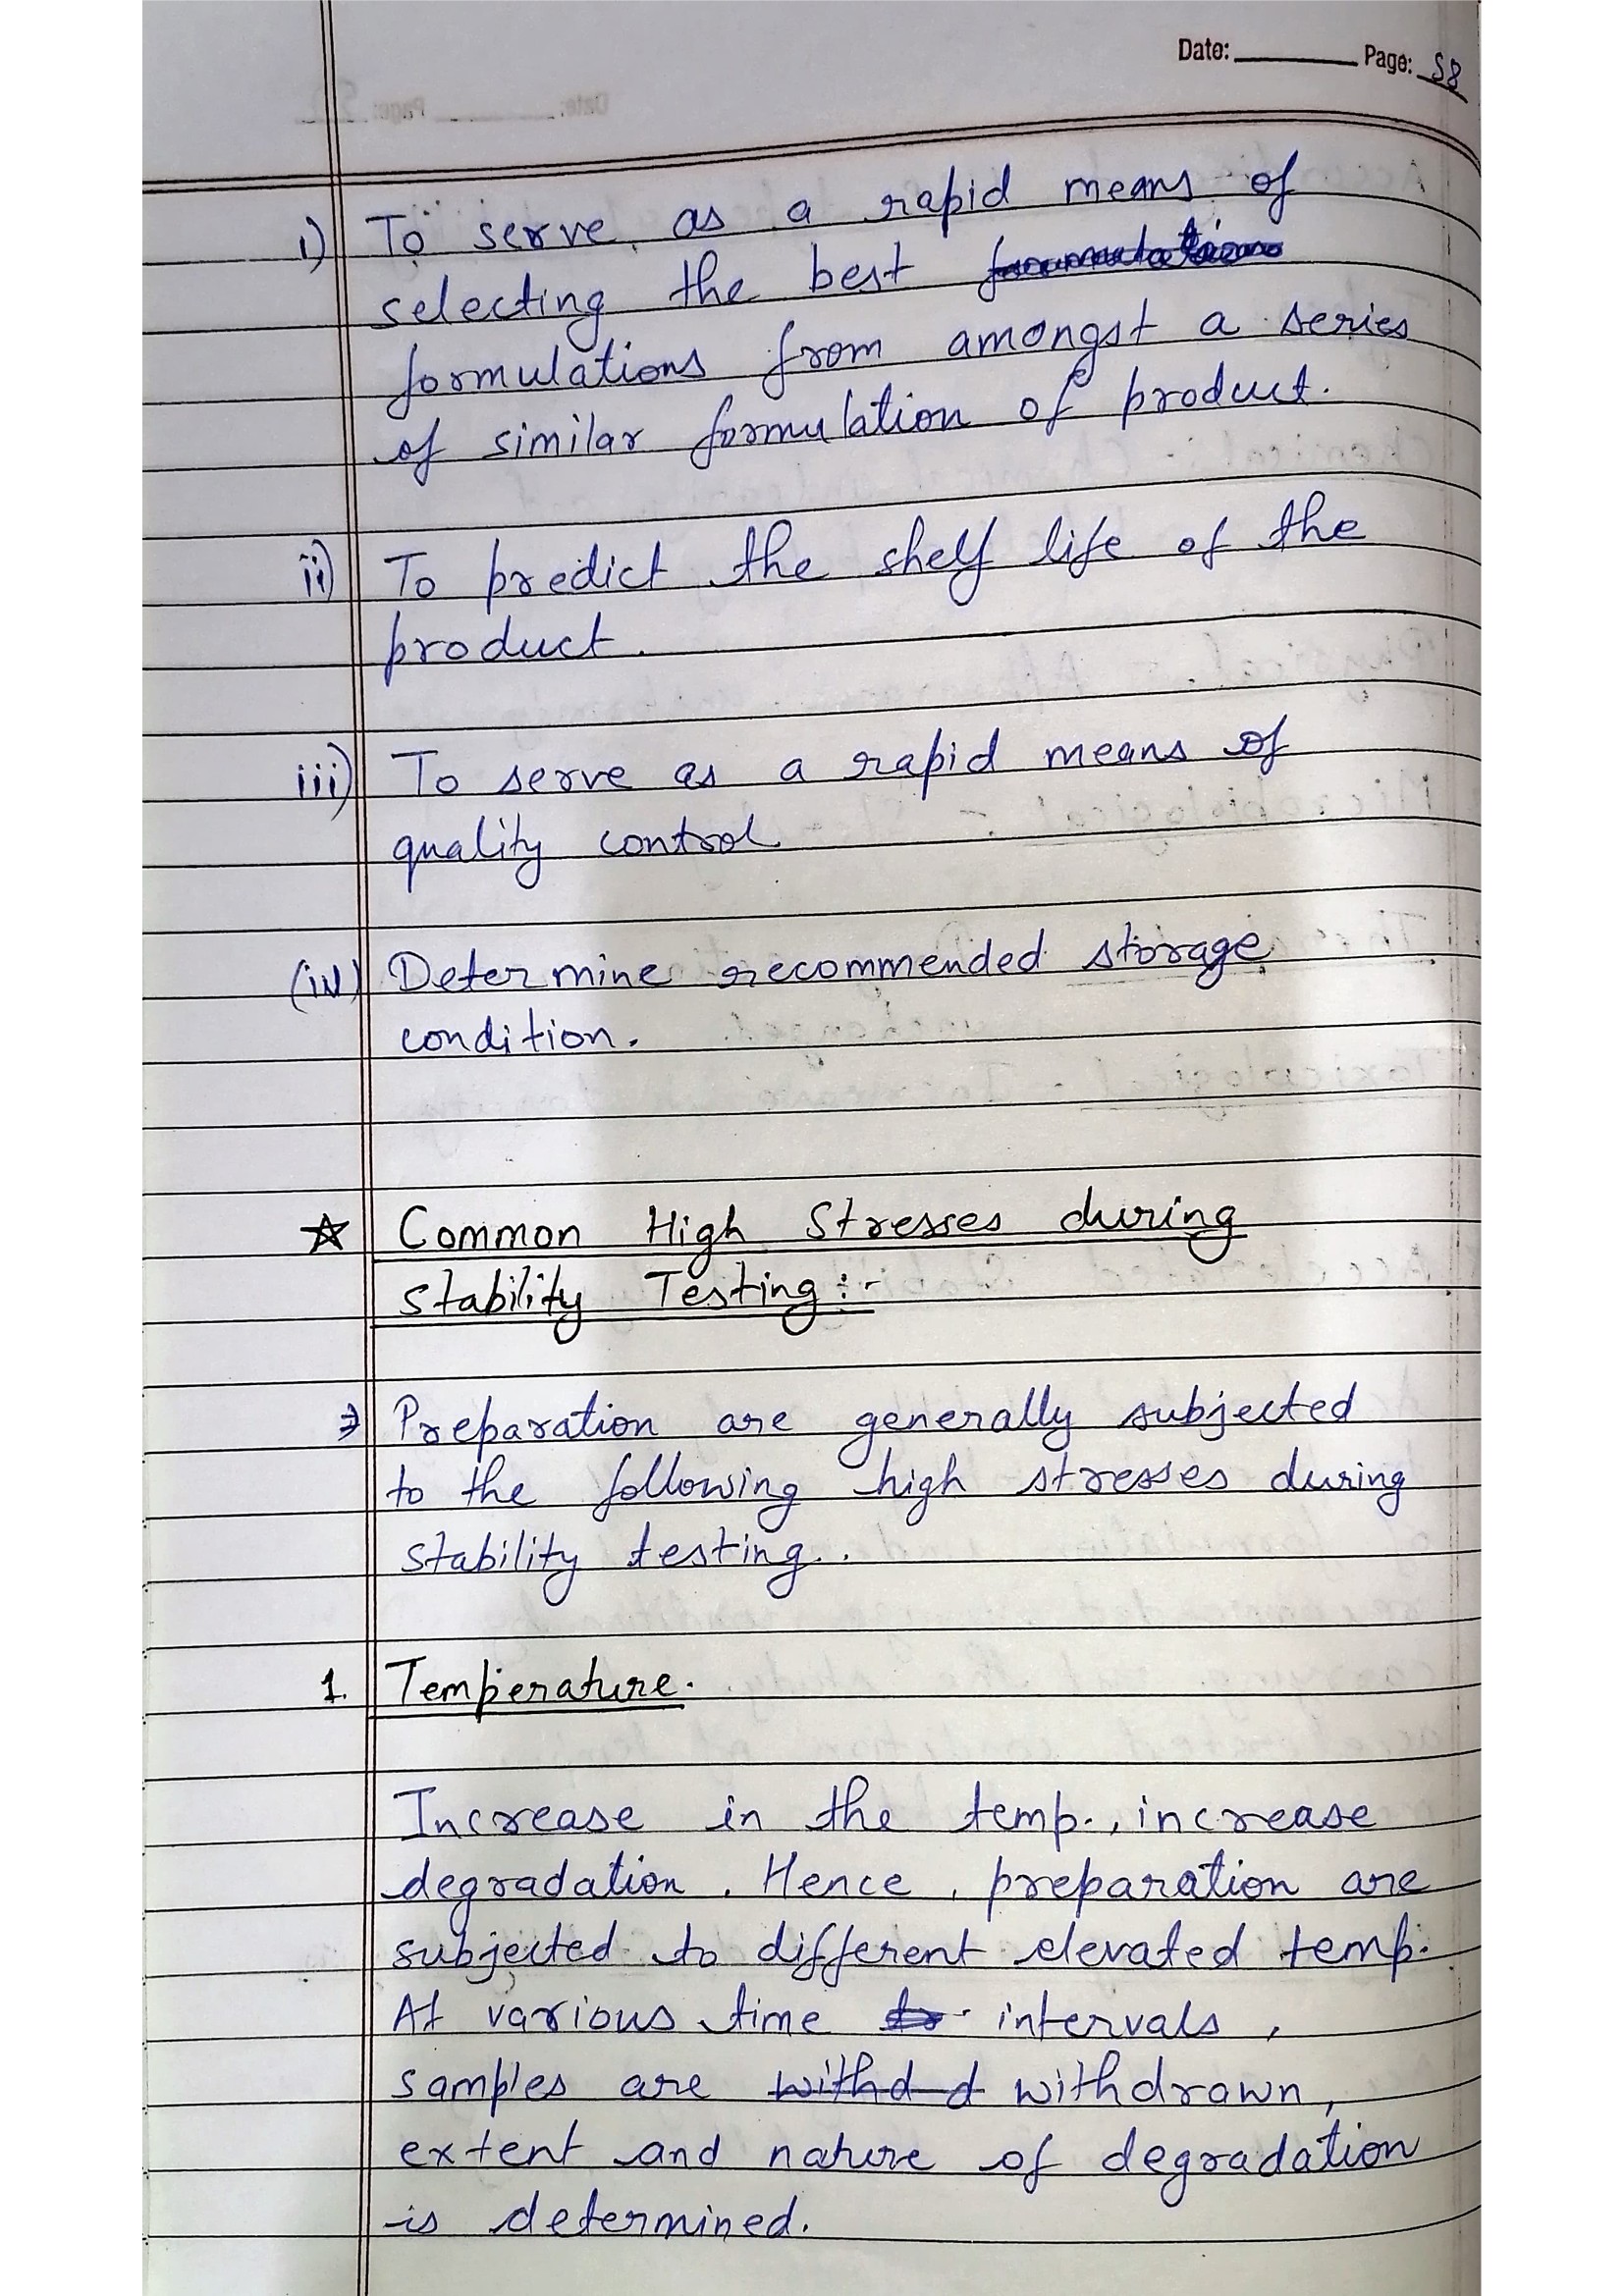 Date: Page: 58
i) To serve as a rapid means of
selecting the best
formulations from amongst a series
of similar formulation of product.
ii) To predict the shelf life of the
product.
iii) To serve as a rapid means of
quality control
(iv) Determine recommended storage
condition.
☆ Common High Stresses during
stability Testing :-
⇒ Preparation are generally subjected
to the following high stresses during
stability testing.
1. Temperature.
Increase in the temp., increase
degradation. Hence, preparation are
subjected to different elevated temp.
At various time intervals,
samples are withdrawn,
extent and nature of degradation
is determined.